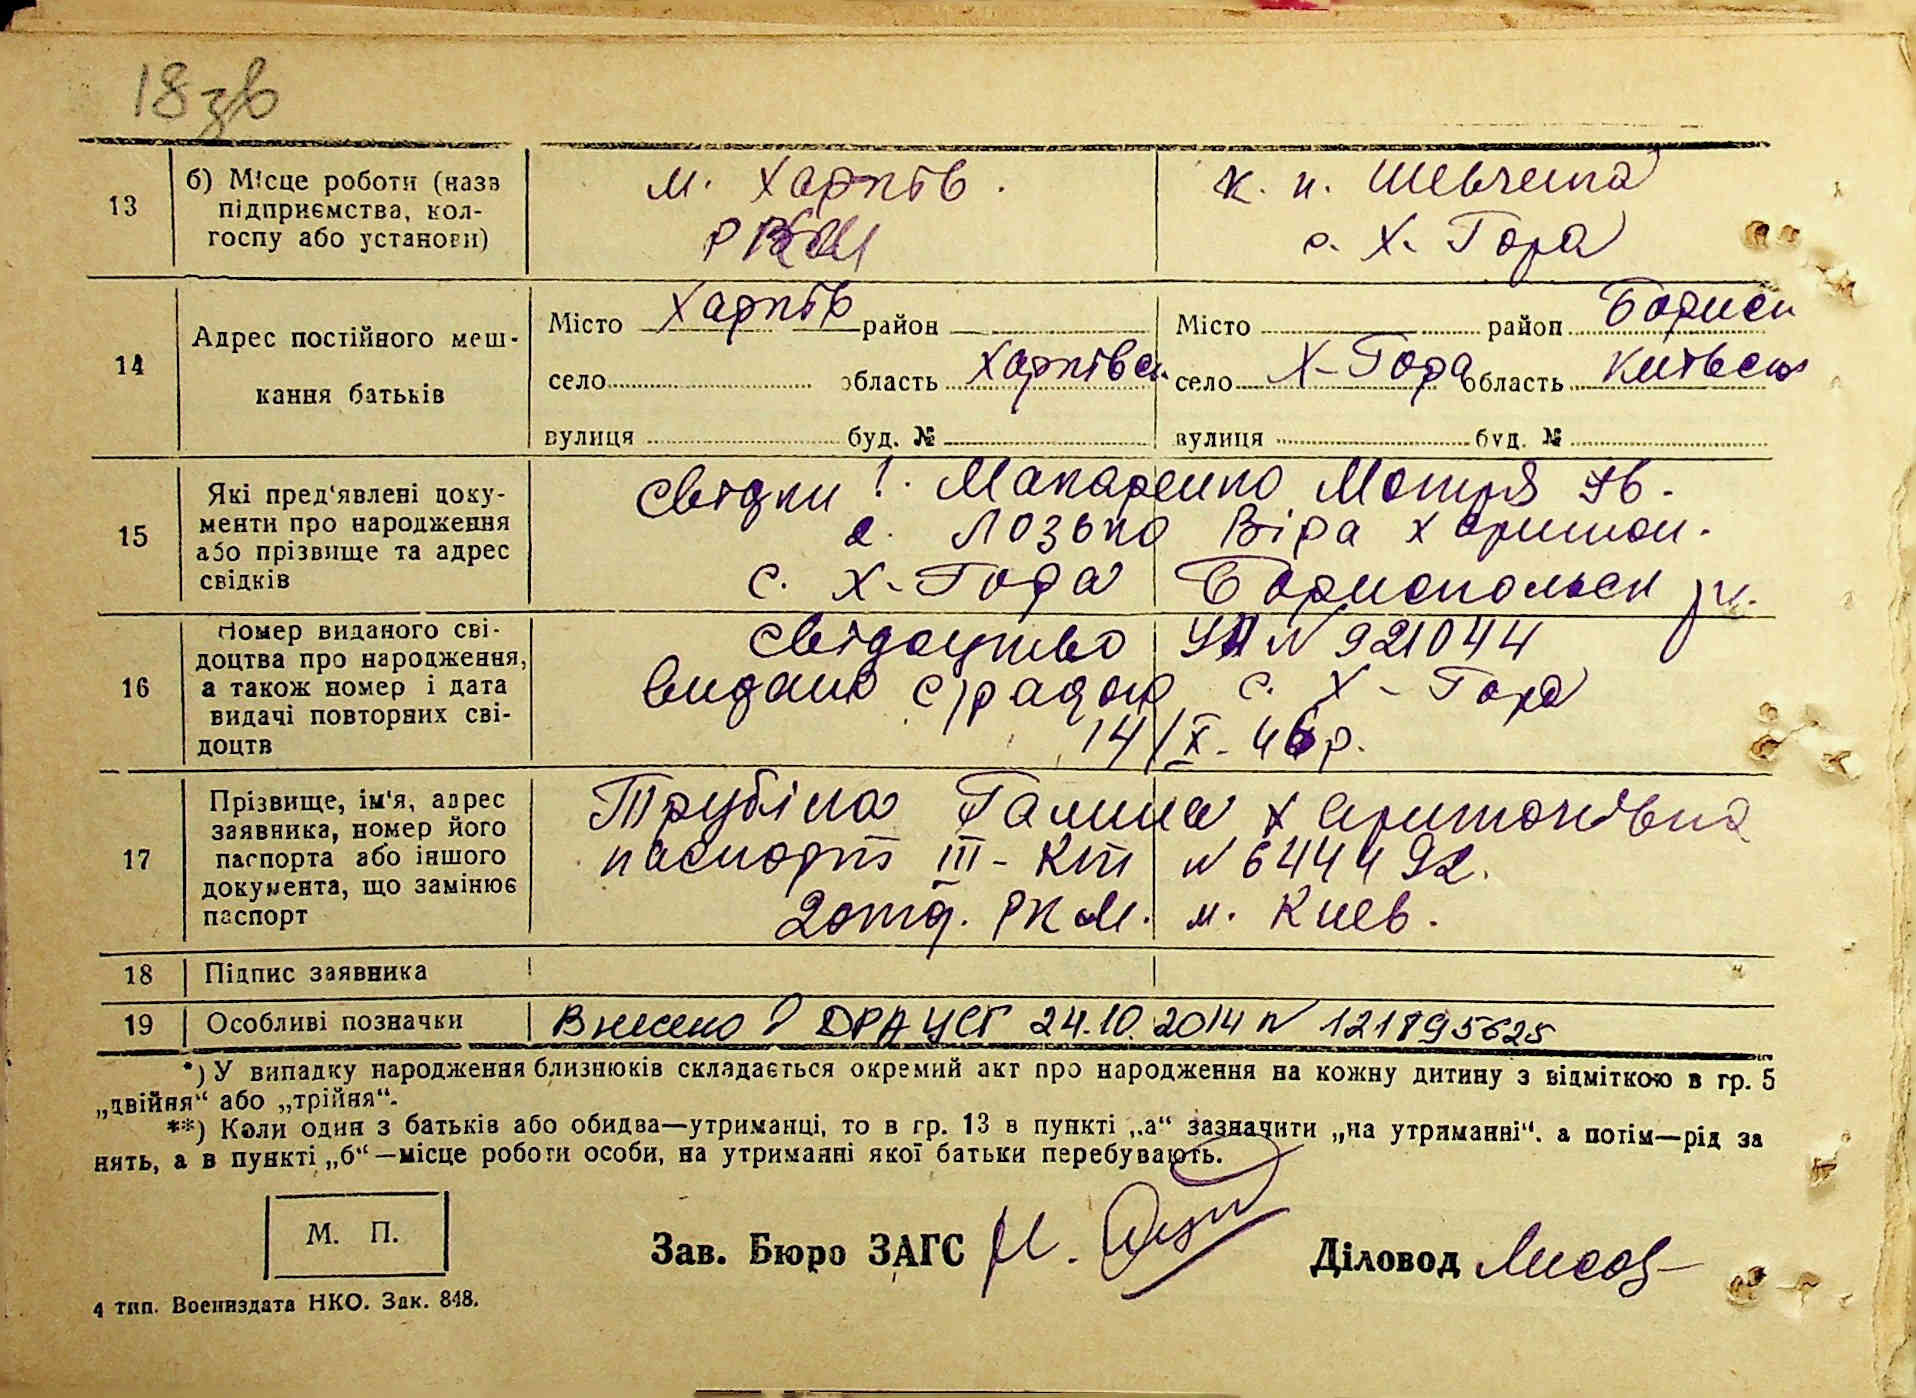 18зв
13 б) Місце роботи (назв м. Харків. к. п. Шевченка
підприємства, кол-
госпу або установи) с. Х. Гора
14 Адрес постійного меш-
кання батьків
Місто Харків район Місто район Борисп
село область Харківск. село Х-Гора область Київськ
вулиця буд. № вулиця буд. №
15 Які пред'явлені доку-
менти про народження
або прізвище та адрес
свідків
свідки 1. Макаренко Мотря Ів.
2. Лозько Віра Харитон.
с. Х-Гора Бориспольск р.
16 Номер виданого сві-
доцтва про народження,
а також номер і дата
видачі повторних сві-
доцтв
свідоцтво N 921044
видано с/радою с. Х-Гора
14/X-46р.
17 Прізвище, ім'я, адрес
заявника, номер його
паспорта або іншого
документа, що замінює
паспорт
Трубіна Галина Харитонівна
паспорт III-КТ N 644492.
2 отд. РКМ. м. Киев.
18 Підпис заявника
19 Особливі позначки Внесено в ДРАЦСГ 24.10.2014 N 121895625
*) У випадку народження близнюків складається окремий акт про народження на кожну дитину з відміткою в гр. 5
„двійня“ або „трійня“.
**) Коли один з батьків або обидва—утриманці, то в гр. 13 в пункті „а“ зазначити „на утриманні“. а потім—рід за
нять, а в пункті „б“—місце роботи особи, на утриманні якої батьки перебувають.
М. П.
Зав. Бюро ЗАГС Діловод
4 тип. Воениздата НКО. Зак. 848.